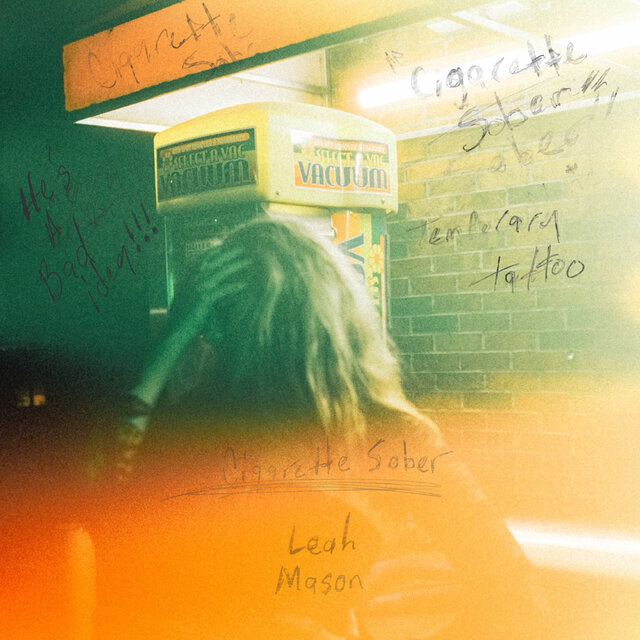 Cigarette
Sober
"Cigarette
Sober"
Sober
SELECT-A-VAC
VACUUM
SELECT-A-VAC
VACUUM
He's
A
Bad
idea!!!
Temporary
tattoo
Cigarette Sober
Leah
Mason